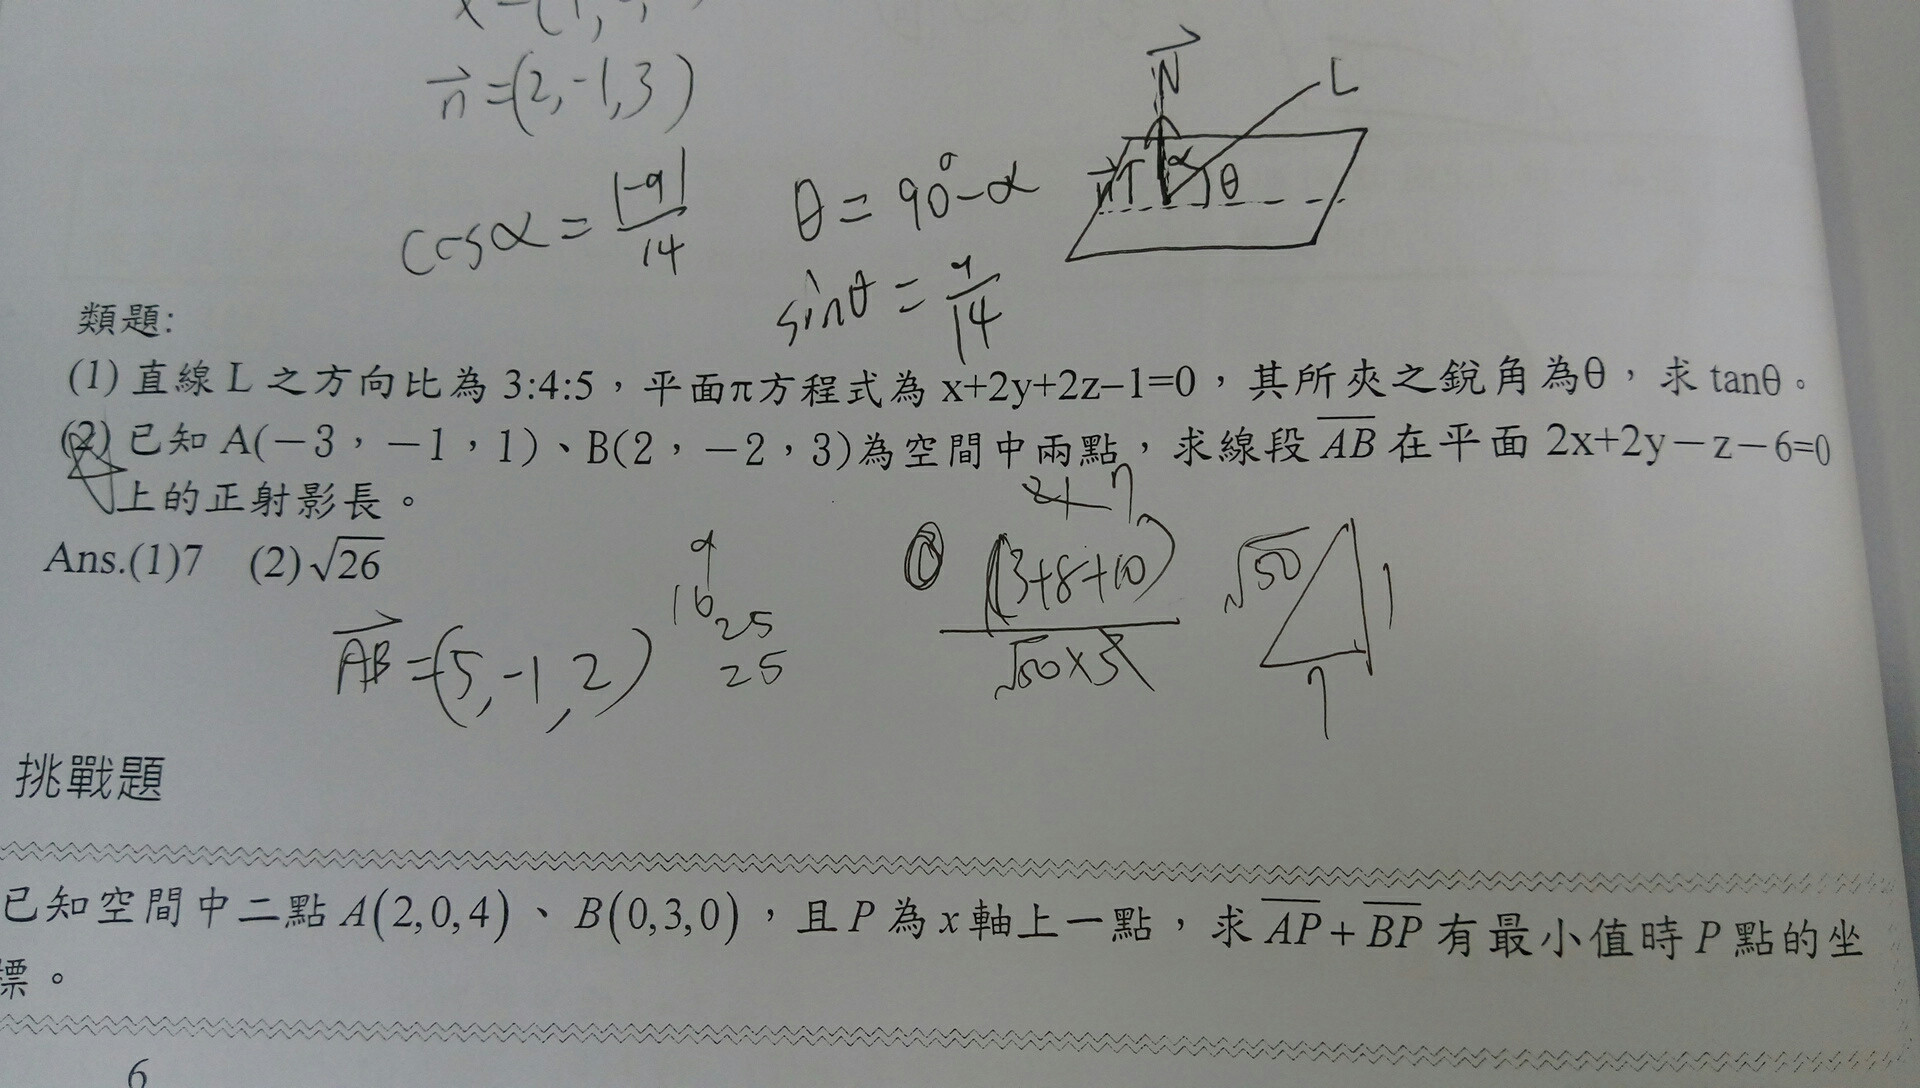 n=(2,-1,3)
N
L
α
θ
cosα=|-9|/14
θ=90°-α
sinθ=9/14
類題:
(1) 直線 L 之方向比為 3:4:5，平面π方程式為 x+2y+2z–1=0，其所夾之銳角為θ，求 tanθ。
(2) 已知 A(－3，－1，1)、B(2，－2，3)為空間中兩點，求線段 AB 在平面 2x+2y－z－6=0
上的正射影長。
Ans.(1)7 (2)√26
AB=(5,-1,2)
9
16
25
25
7
(3+8+10)
√50×3
√50
1
7
挑戰題
已知空間中二點 A(2,0,4)、B(0,3,0)，且 P 為 x 軸上一點，求 AP+BP 有最小值時 P 點的坐
標。
6